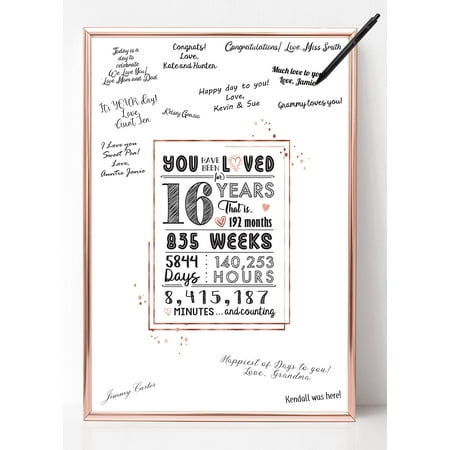 Today is a
day to
celebrate
We Love You!
Love Mom and Dad
Congrats!
Love,
Kate and Hunter
Congratulations! Love, Miss Smith
Much love to you
Love, Jamie
Happy day to you!
Love,
Kevin & Sue
Grammy loves you!
It's YOUR day!
Love,
Aunt Jen
Kelsey Gracia
I Love you
Sweet Pea!
Love,
Auntie Janie
YOU HAVE BEEN LOVED
for
16 YEARS
That is...
192 months
835 WEEKS
5844 Days
140,253 HOURS
8,415,187
MINUTES ...and counting
Happiest of Days to you!
Love, Grandma
Jimmy Carter
Kendall was here!